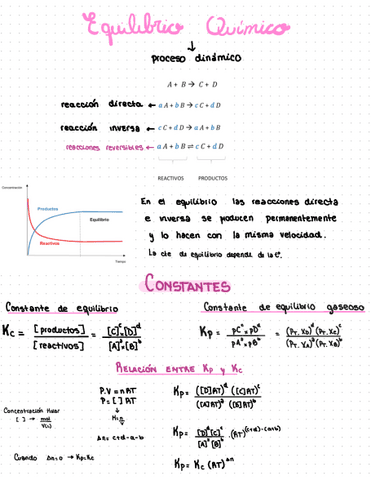 Equilibrio Químico
↓
proceso dinámico
A + B → C + D
reacción directa ← aA + bB → cC + dD
reacción inversa ← cC + dD → aA + bB
reacciones reversibles ← aA + bB ⇌ cC + dD
REACTIVOS PRODUCTOS
Concentración
Productos
Equilibrio
Reactivos
Tiempo
En el equilibrio las reacciones directa
e inversa se producen permanentemente
y lo hacen con la misma velocidad.
La cte de equilibrio depende de la tª.
CONSTANTES
Constante de equilibrio
Kc = [productos] / [reactivos] = [C]^c·[D]^d / [A]^a·[B]^b
Constante de equilibrio gaseoso
Kp = pC^c·pD^d / pA^a·pB^b
RELACIÓN ENTRE Kp y Kc
P.V = nRT
P = [ ] RT
Concentración Molar
[ ] → mol / V(L)
↓
M = n / V
Δn = c+d-a-b
Cuando Δn=0 → Kp=Kc
Kp = ([D]RT)^d ([C]RT)^c / ([A]RT)^a ([B]RT)^b
Kp = [D]^d [C]^c / [A]^a [B]^b · (RT)^(c+d)-(a+b)
Kp = Kc (RT)^Δn